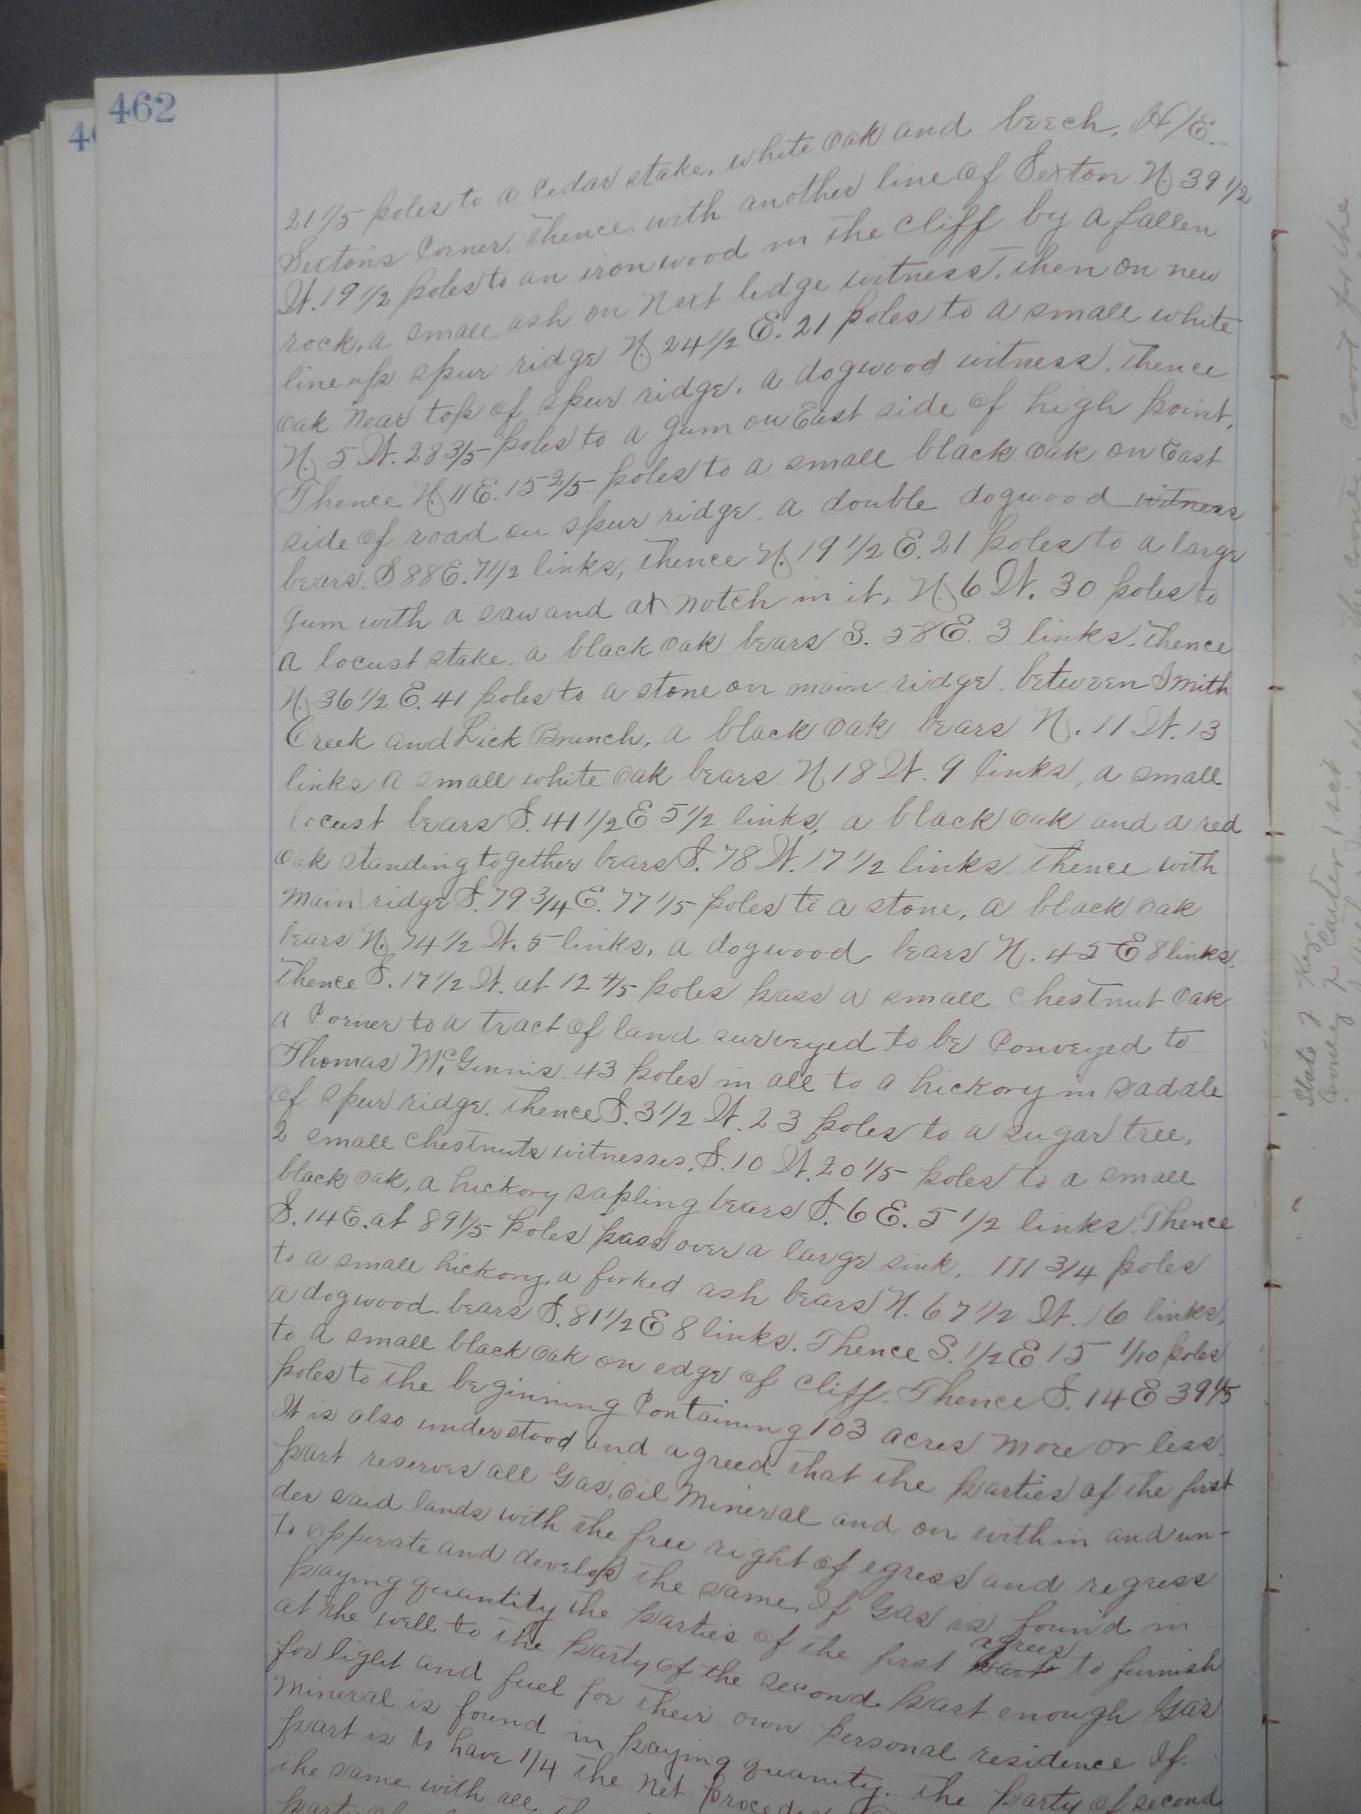 462
21 1/5 poles to a cedar stake, white oak and beech, H/E.
Sexton's Corner, thence with another line of Sexton N. 39 1/2
W. 19 1/2 poles to an ironwood in the cliff by a fallen
rock, a small ash on next ledge witness, then on new
line up spur ridge N. 24 1/2 E. 21 poles to a small white
oak near top of spur ridge, a dogwood witness, thence
N. 5 W. 28 3/5 poles to a gum on East side of high point,
Thence N. 11 E. 15 2/5 poles to a small black oak on East
side of road on spur ridge. a double dogwood witness
bears. S 88 E. 7 1/2 links, thence N. 19 1/2 E. 21 poles to a large
gum with a saw and ax notch in it, N. 6 W. 30 poles to
a locust stake. a black oak bears S. 58 E. 3 links. thence
N. 36 1/2 E. 41 poles to a stone on main ridge. between Smith
Creek and Lick Branch, a black oak bears N. 11 W. 13
links a small white oak bears N 18 W. 9 links, a small
locust bears S. 41 1/2 E 5 1/2 links, a black oak and a red
oak standing together bears S. 78 W. 17 1/2 links. thence with
Main ridge S. 79 3/4 E. 77 1/5 poles to a stone, a black oak
bears N. 74 1/2 W. 5 links, a dogwood bears N. 45 E 8 links.
thence S. 17 1/2 W. at 12 4/5 poles pass a small chestnut oak
a Corner to a tract of land surveyed to be Conveyed to
Thomas McGinnis. 43 poles in all to a hickory in saddle
of spur ridge. thence S. 3 1/2 W. 23 poles to a sugar tree,
2 small chestnuts witnesses, S. 10 W. 20 1/5 poles to a small
black oak, a hickory sapling bears S. 6 E. 5 1/2 links. Thence
S. 14 E. at 89 1/5 poles pass over a large sink, 111 3/4 poles
to a small hickory, a forked ash bears N. 67 1/2 W. 16 links,
a dogwood bears S. 81 1/2 E 8 links. Thence S. 1/2 E 15 1/10 poles
to a small black oak on edge of cliff. Thence S. 14 E 39 4/5
poles to the beginning Containing 103 acres more or less.
It is also understood and agreed that the parties of the first
part reserves all Gas, oil Mineral and on within and un-
der said lands with the free right of egress and regress
to opperate and develop the same. If Gas is found in
paying quantity the parties of the first part agrees to furnish
at the well to the party of the second part enough Gas
for light and fuel for their own personal residence If
Mineral is found in paying quanity. the party of second
part is to have 1/4 the net
the same with all
State of Ky.